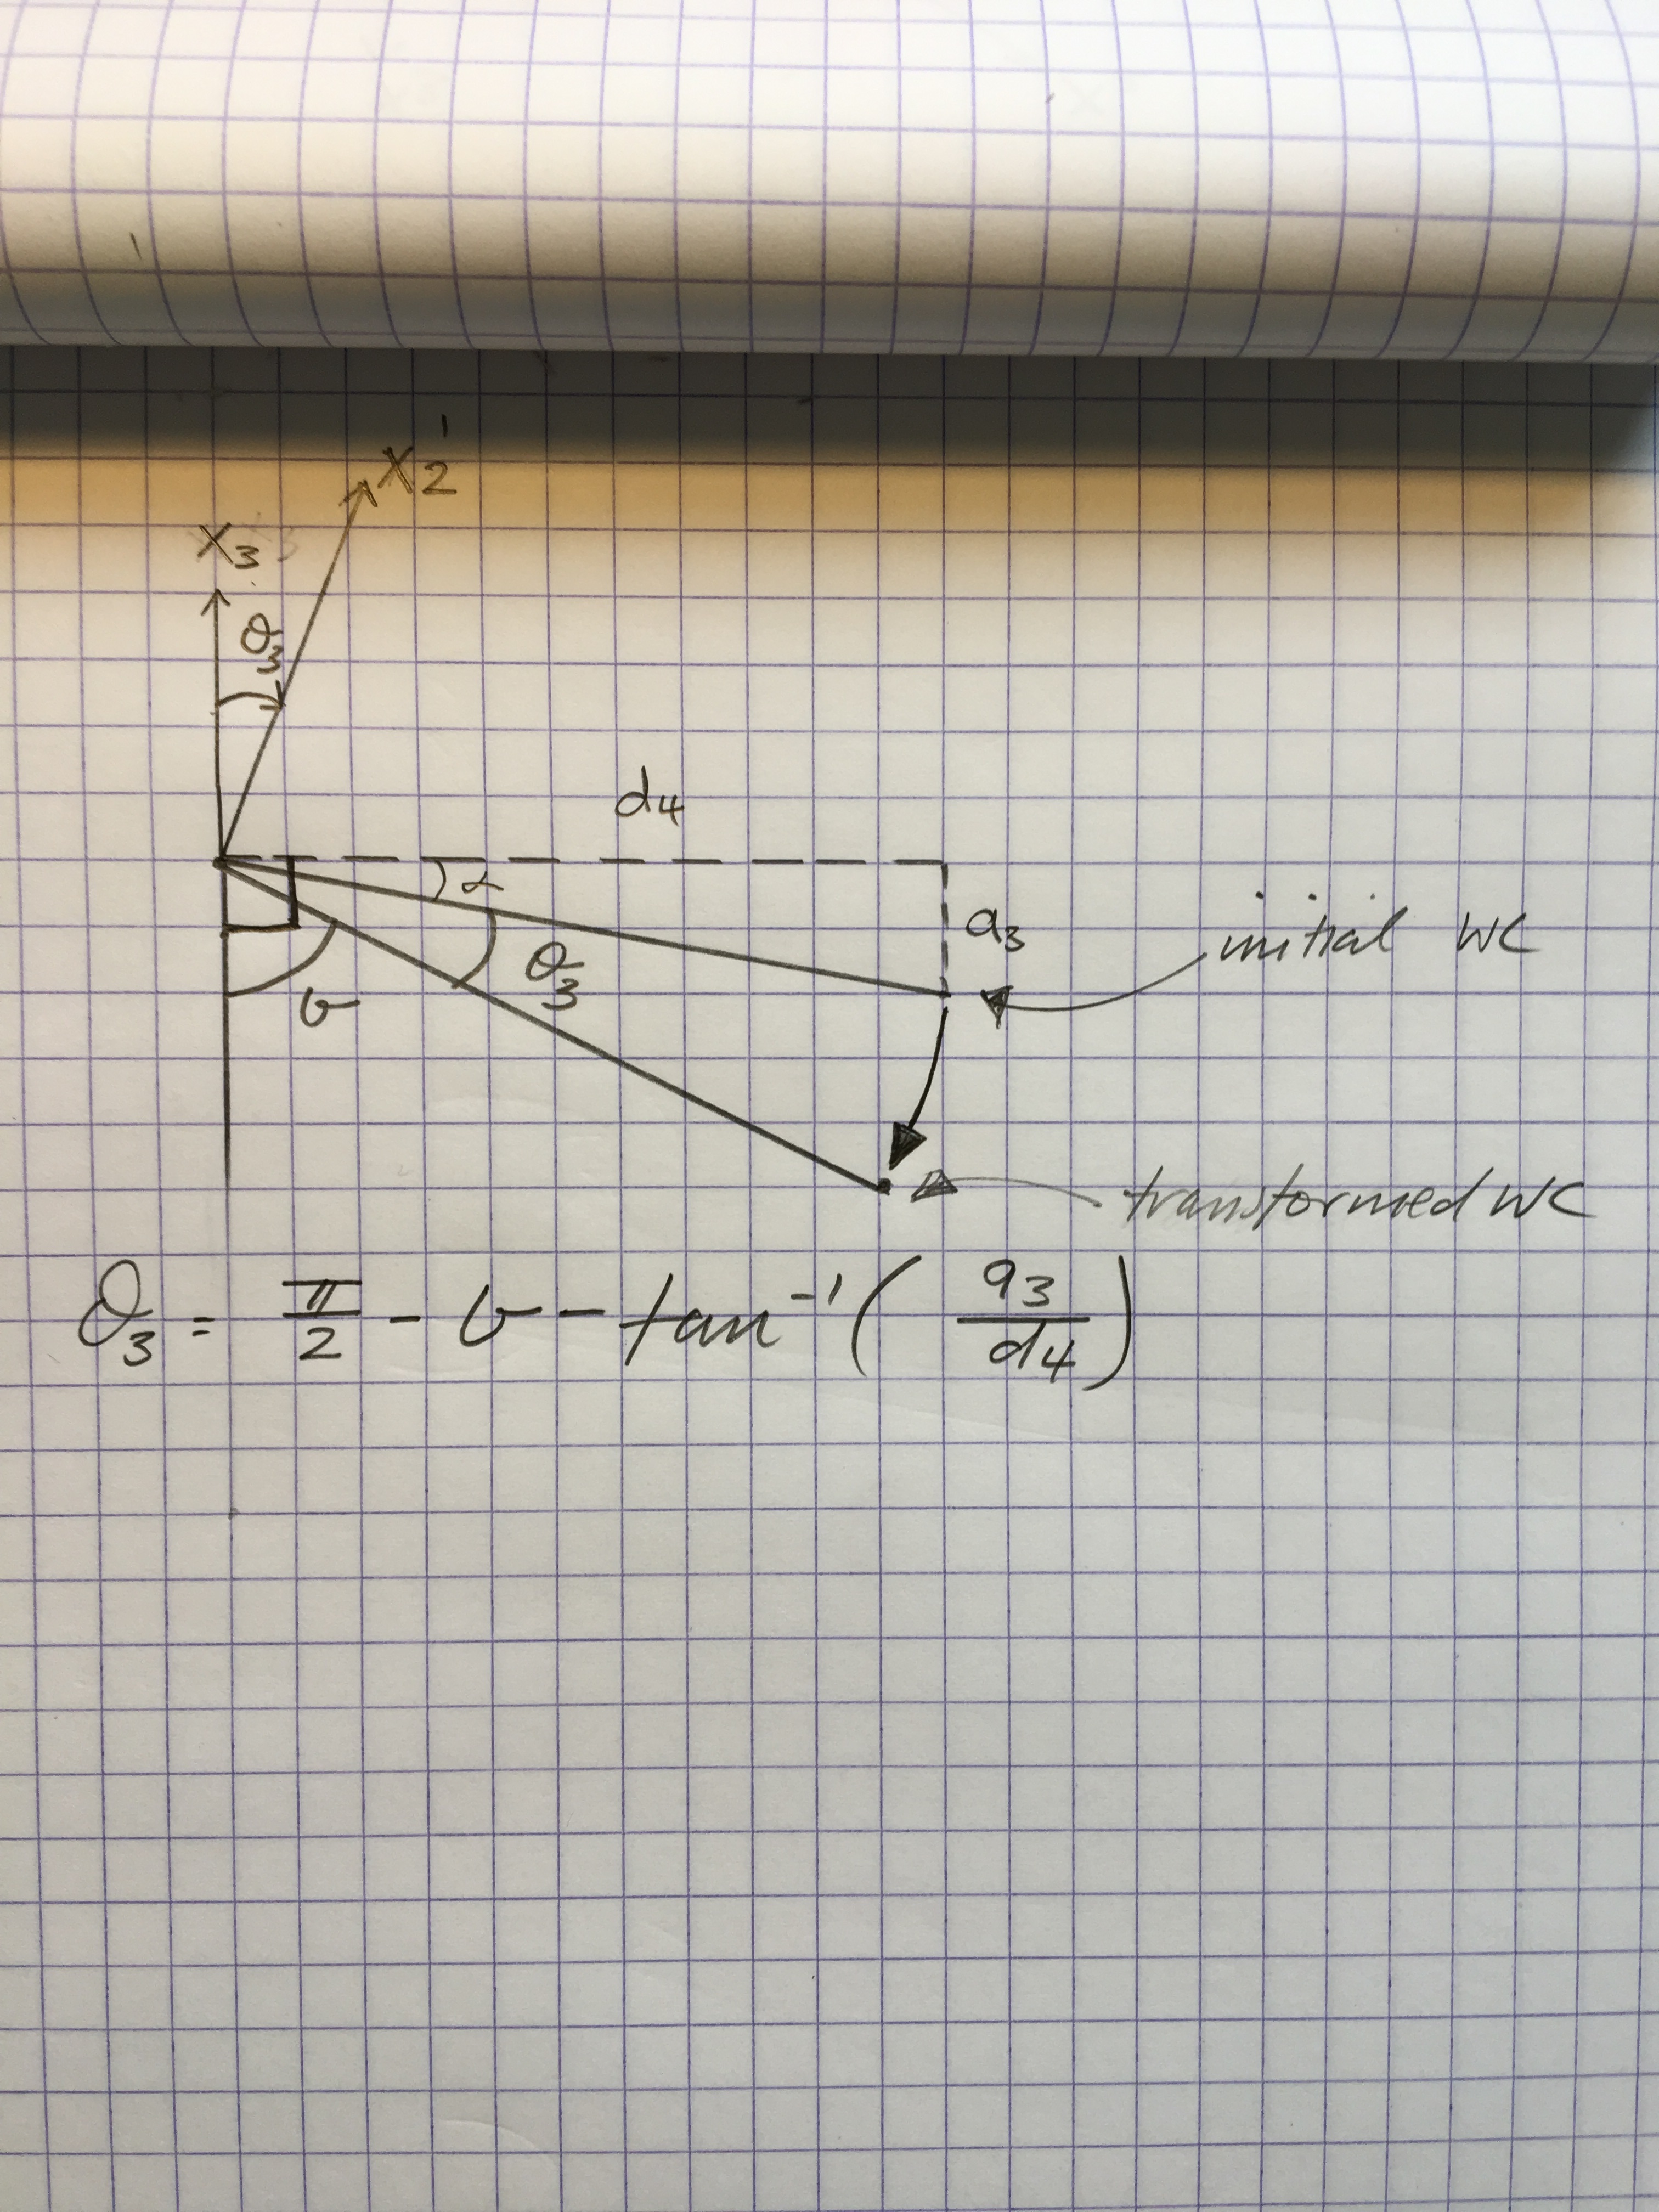 X₂'
X₃
θ₃
d₄
α
a₃
initial WC
θ₃
b
transformed WC
θ₃ = π/2 - b - tan⁻¹(a₃/d₄)